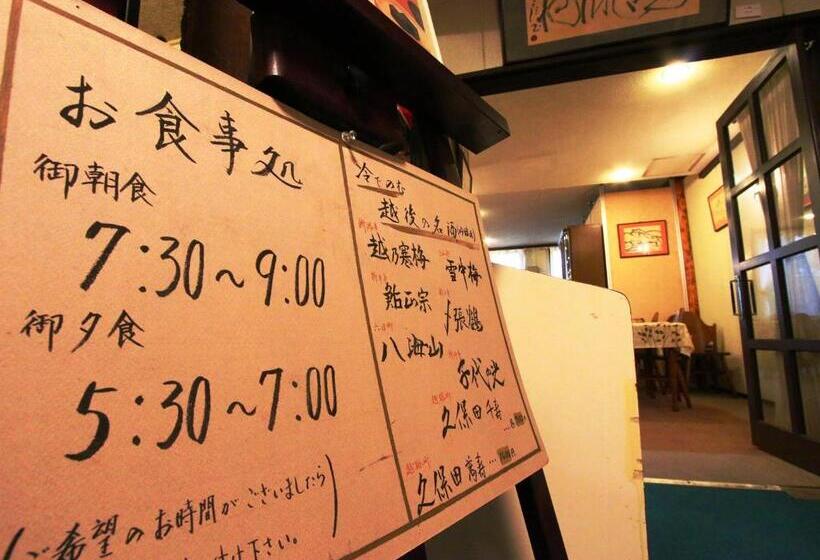 お食事処
御朝食
7:30～9:00
御夕食
5:30～7:00
(ご希望のお時間がございましたら
下さい。)
冷でのむ
越後の名酒
越乃寒梅
雪中梅
鮎正宗
〆張鶴
八海山
千代の光
久保田 千寿
久保田 萬寿